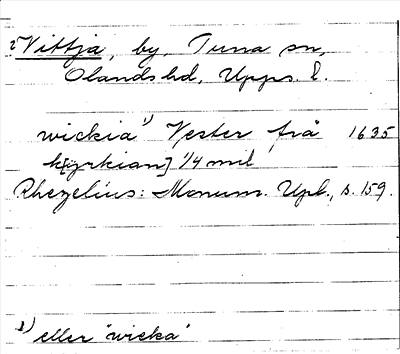 i Vittja, by, Tuna sn,
Olands hd, Upps. l.
wickia¹⁾ Vester frå 1635
k[yrkian] 1/4 mil
Rhezelius: Monum. Upl., s. 159.
¹⁾ eller "wicka"